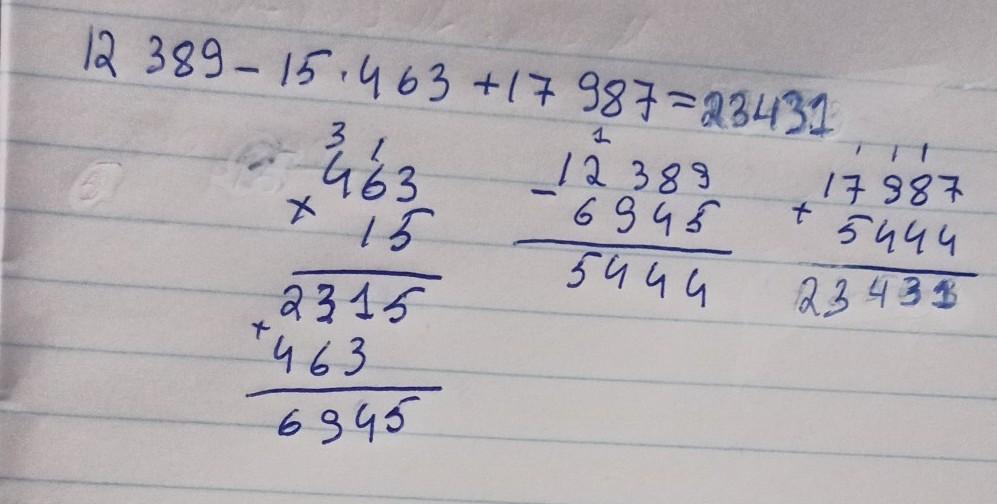 12 389 - 15 · 463 + 17 987 = 23431
3 1
463
× 15
2315
+ 463
6945
1
- 12 389
6945
5444
1 1 1
17 987
+ 5444
23431